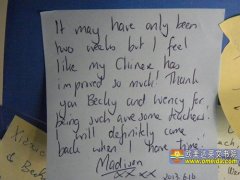 It may have only been
two weeks but I feel
like my Chinese has
improved so much! Thank
you Becky and Wency for
being such awesome teachers.
I will definitely come
back when I have time!
Madison
xx xx
2013.6.16
& Beck